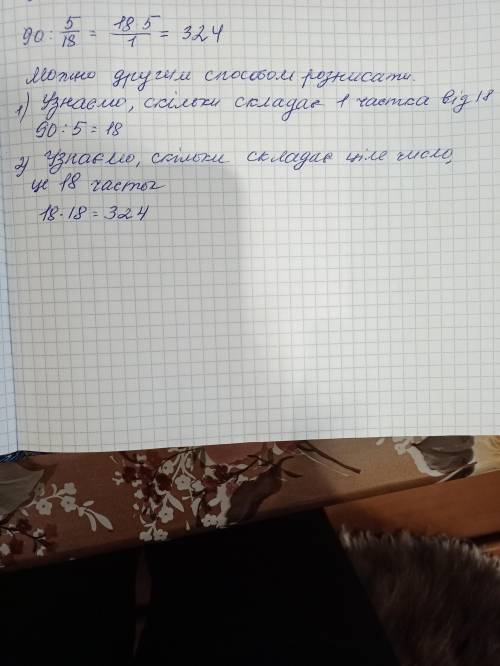 90 : 5/18 = 18·5/1 = 324
Можно другим способом розписати.
1) Узнаємо, скільки складає 1 частка від 18
90 : 5 = 18
2) Узнаємо, скільки складає ціле число,
це 18 часток
18·18 = 324